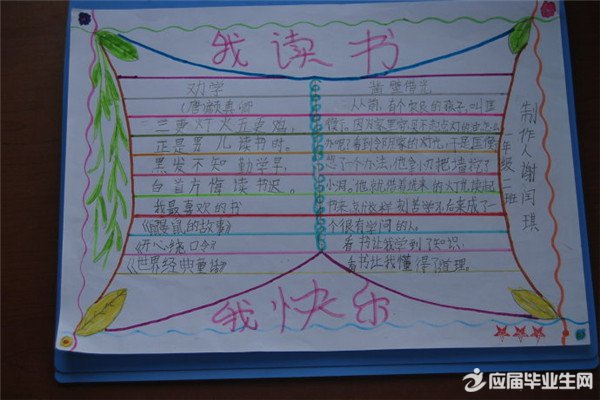 我读书
劝学
(唐)颜真卿
三更灯火五更鸡,
正是男儿读书时。
黑发不知勤学早,
白首方悔读书迟。
我最喜欢的书
《鼹鼠的故事》
《开心绕口令》
《世界经典童话》
凿壁借光
从前,有个农民的孩子,叫匡
衡。因为家里穷买不起点灯的油怎么
办呢?看到邻居家的灯光,于是匡衡
想了一个办法,他拿小刀把墙挖了
小洞。他就借着透来的灯光读起
书来。就这样刻苦学习后来成了一
个很有学问的人。
看书让我学到了知识
看书让我懂得了道理。
一年级二班
制作人谢闰琪
我快乐
应届毕业生网